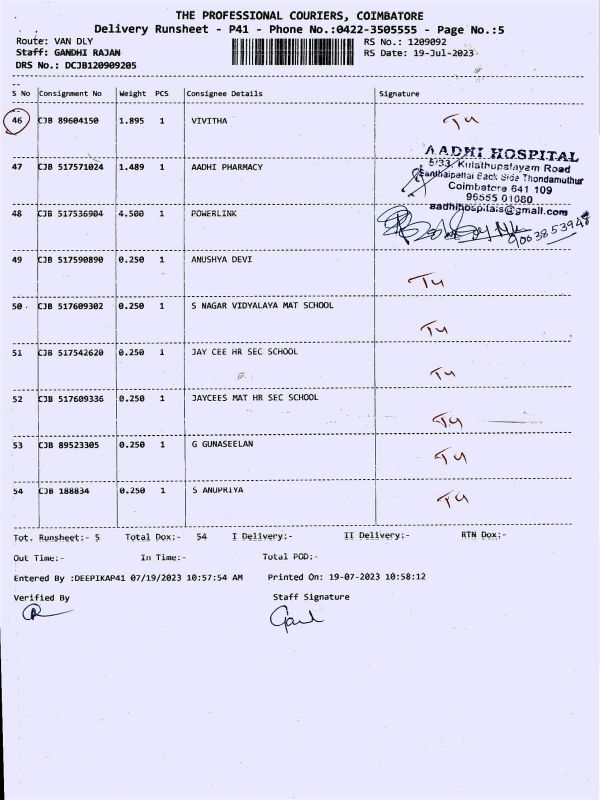 THE PROFESSIONAL COURIERS, COIMBATORE
Delivery Runsheet - P41 - Phone No.:0422-3505555 - Page No.:5
Route: VAN DLY RS No.: 1209092
Staff: GANDHI RAJAN RS Date: 19-Jul-2023
DRS No.: DCJB120909205
S No Consignment No Weight PCS Consignee Details Signature
46 CJB 89604150 1.895 1 VIVITHA
AADHI HOSPITAL
5/33, Kulathupalayam Road
47 CJB 517571024 1.489 1 AADHI PHARMACY
Santhaipettai Back Side Thondamuthur
Coimbatore 641 109
96555 01080
aadhihospitals@gmail.com
48 CJB 517536904 4.500 1 POWERLINK
49 CJB 517590890 0.250 1 ANUSHYA DEVI
50 CJB 517609302 0.250 1 S NAGAR VIDYALAYA MAT SCHOOL
51 CJB 517542620 0.250 1 JAY CEE HR SEC SCHOOL
52 CJB 517609336 0.250 1 JAYCEES MAT HR SEC SCHOOL
53 CJB 89523305 0.250 1 G GUNASEELAN
54 CJB 188834 0.250 1 S ANUPRIYA
Tot. Runsheet:- 5 Total Dox:- 54 I Delivery:- II Delivery:- RTN Dox:-
Out Time:- In Time:- Total POD:-
Entered By :DEEPIKAP41 07/19/2023 10:57:54 AM Printed On: 19-07-2023 10:58:12
Verified By Staff Signature